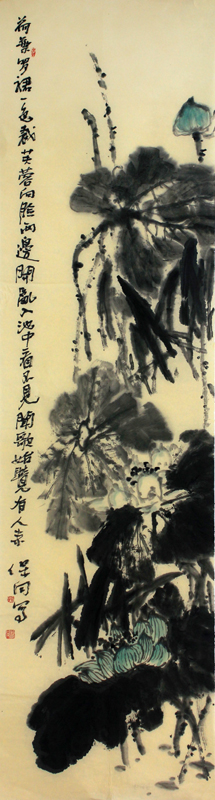 荷葉罗裙一色裁芙蓉向脸两邊開亂入池中看不見聞歌始覺有人来
保同寫